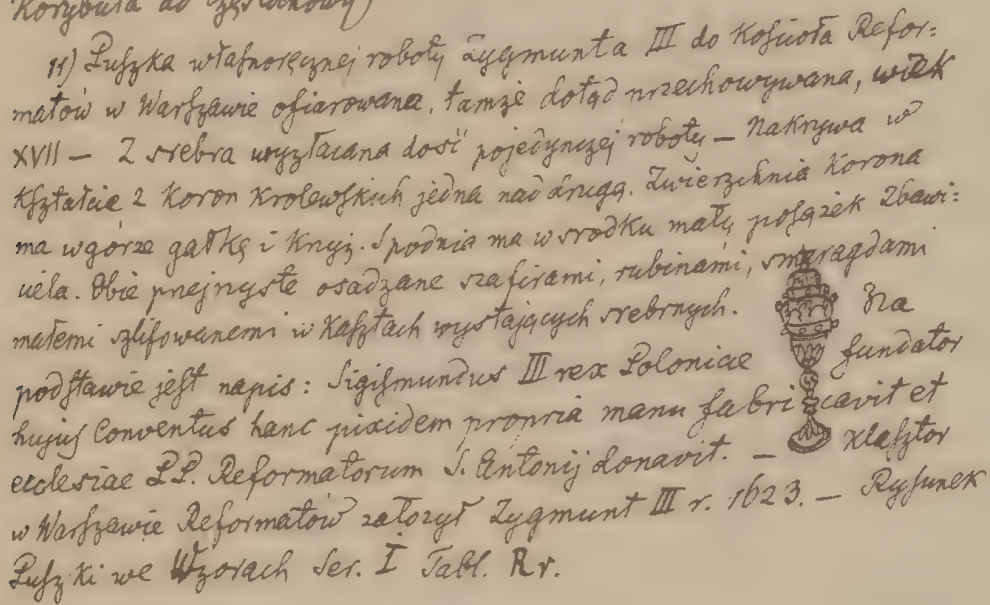 Korybuta do Częstochowy)
11) Puszka własnoręcznej roboty Zygmunta III do Kościoła Refor:
matów w Warszawie ofiarowana, tamże dotąd przechowywana, wiek
XVII — Z srebra wyzłacana dość pojedynczej roboty — Nakrywa w
Kształcie 2 Koron Krolewskich jedna nad drugą. Zwierzchnia Korona
ma w górze gałkę i Krzyż. Spodnia ma w srodku mały posążek Zbawi:
ciela. Obie przejrzyste osadzane szafirami, rubinami, smaragdami
małemi szlifowanemi w Kasztach wystających srebrnych. Na
podstawie jest napis: Sigismundus III rex Poloniae fundator
hujus Conventus hanc pixidem propria manu fabricavit et
ecclesiae P.P. Reformatorum S. Antonij donavit. — Klasztor
w Warszawie Reformatów założył Zygmunt III r. 1623. — Rysunek
Puszki we Wzorach Ser. I Tabl. Rr.